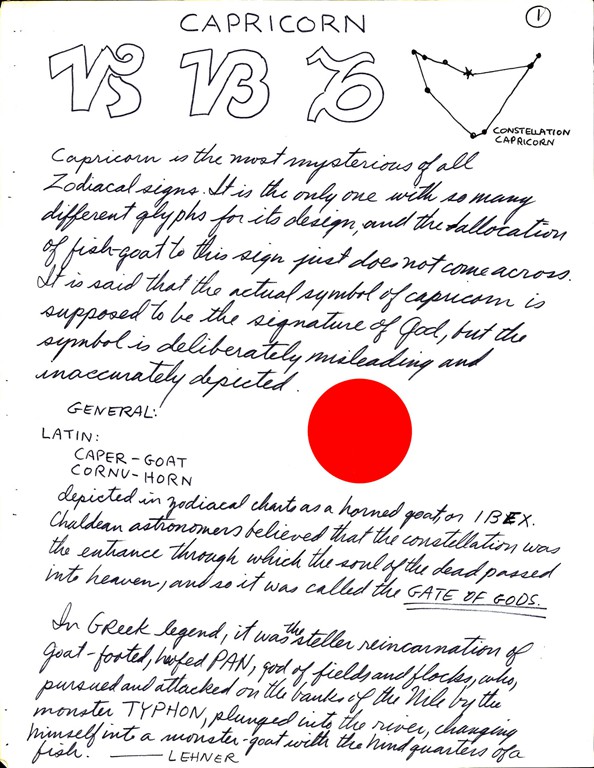 CAPRICORN
1
CONSTELLATION
CAPRICORN
Capricorn is the most mysterious of all
Zodiacal signs. It is the only one with so many
different glyphs for its design, and the allocation
of fish-goat to this sign just does not come across.
It is said that the actual symbol of capricorn is
supposed to be the signature of God, but the
symbol is deliberately misleading and
inaccurately depicted.
GENERAL:
LATIN:
CAPER-GOAT
CORNU-HORN
depicted in zodiacal charts as a horned goat or IBEX.
Chaldean astronomers believed that the constellation was
the entrance through which the soul of the dead passed
into heaven, and so it was called the GATE OF GODS.
In Greek legend, it was the steller reincarnation of
goat-footed, hoofed PAN, god of fields and flocks, who,
pursued and attacked on the banks of the Nile by the
monster TYPHON, plunged into the river, changing
himself into a monster-goat with the hind quarters of a
fish. —— LEHNER